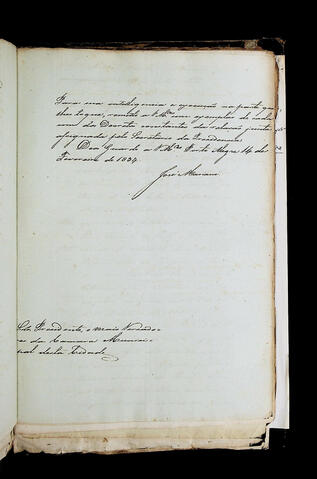 Para sua intelligencia e execução na parte que
lhes toca, remeto a VMces um exemplar de cada
um dos Decretos constantes da relação junta
assignada pelo Secretario da Presidencia.
Deos Guarde a VMces Porto Alegre 14 de
Fevereiro de 1834.
José Mariani
Presidente, e mais Vereado-
res da Camara Munici-
pal desta Cidade